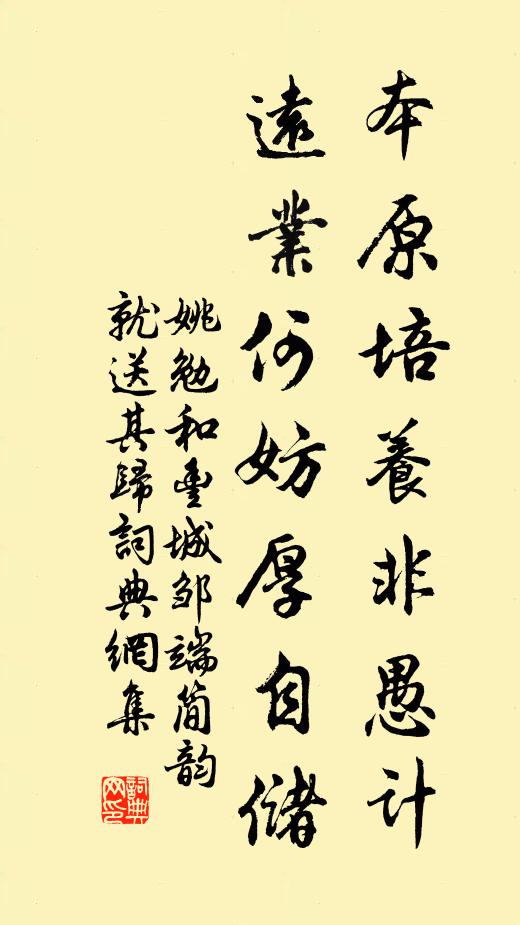 本原培養非愚計
遠業何妨厚自儲
姚勉和豊城邹端简韵
就送其歸詞典網集
詞典网印